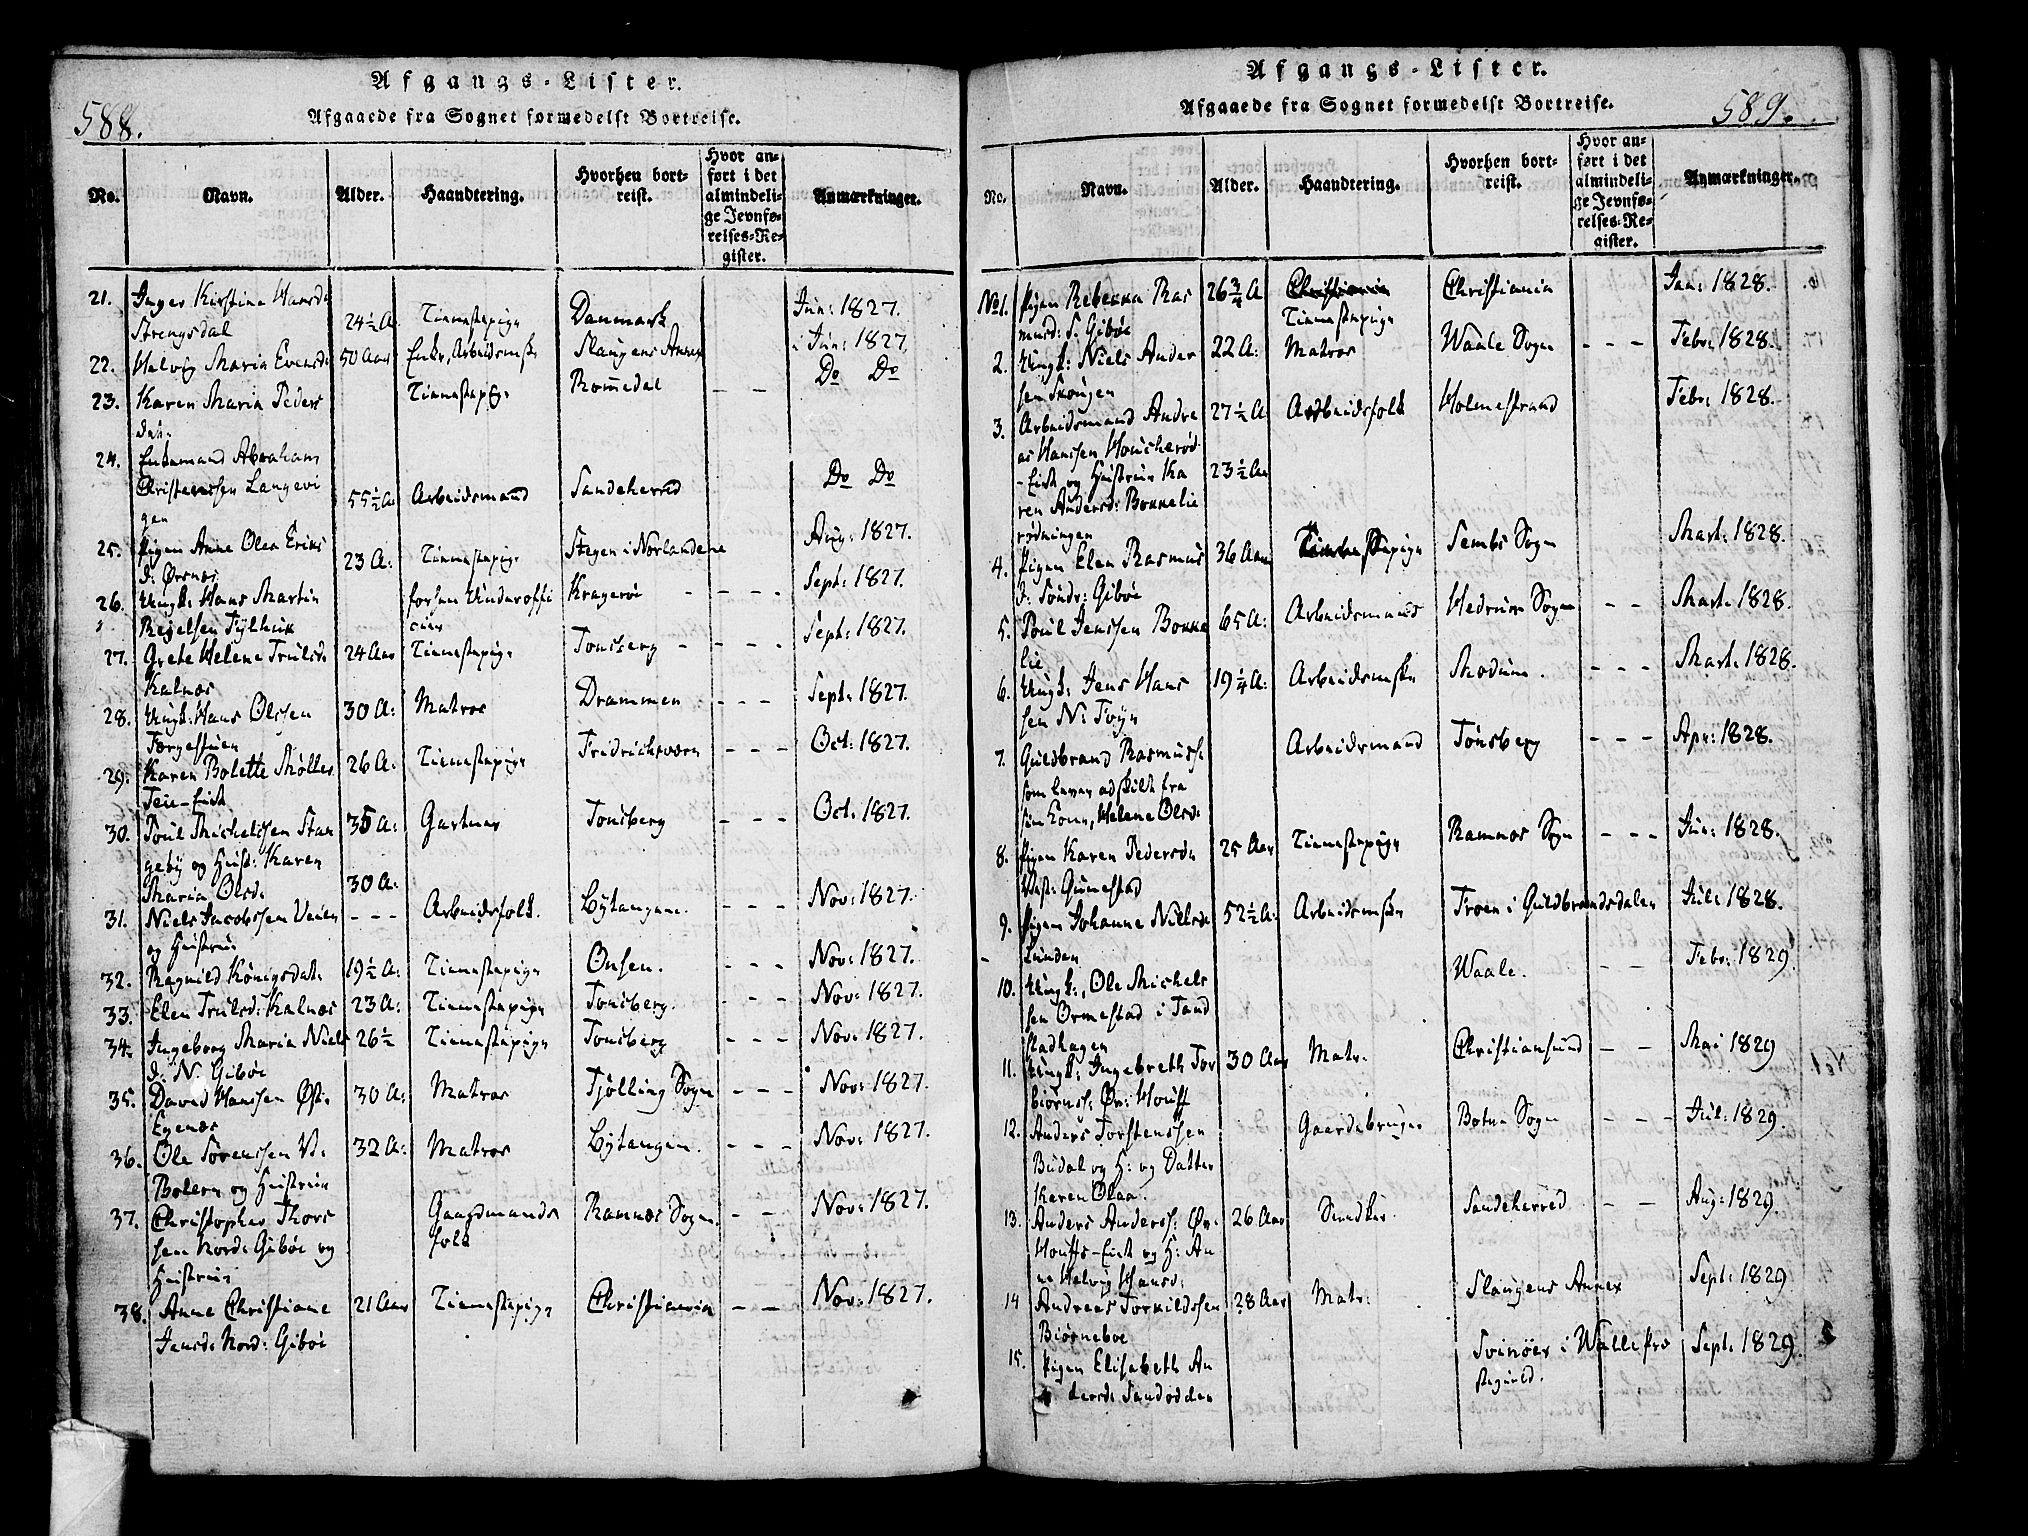 588.
Afgangs-Lister.
Afgaaede fra Sognet formedelst Bortreise.
No. Navn. Alder. Haandtering. Hvorhen bortreist. Hvor anført i det almindelige Jevnførelses-Register. Anmærkninger.
21. Inger Kirstine Hansd. Strengsdal 24½ A. Tienestepige Danmark Jun: 1827.
22. Helvig Maria Evensd. 50 Aar Enke, Arbeidsmsk Slaugens Annex Jun: 1827.
23. Karen Maria Peders dat: Tienestepige Rommedal - - Do Do
24. Enkemand Abraham Christenssen Langevigen 55½ A Arbeidsmand Sandeherred Do Do
25. Pigen Anne Olea Eriks d: Ørsnæs 23 A: Tienestepige Stegen i Norlandene Aug: 1827.
26. Ungk: Hans Martin forhen Underofficier Kragerøe - - - - Sept: 1827.
27. Grete Helene Trulsd. Kalnæs 24 Aar Tienestepige Tonsberg - - - - Sept: 1827.
28. Ungk: Hans Olssen Færgestuen 30 A: Matros Drammen - - - Sept: 1827.
29. Karen Bolette Møller Teie-Eiet 26 A: Tienestepige Fridrichsværn - - - Oct: 1827.
30. Poul Michelssen Stangeby og Hust: Karen Maria Olsd. 35 A: 30 A: Gartner Tonsberg - - - Oct: 1827.
31. Niels Jacobssen Veien og Hustrue - - - Arbeidsfolk. Lytangen. - - - Nov: 1827.
32. Ragnild Kønigsdat: 19½ A: Tienestepige Onsen. - - - Nov: 1827.
33. Elen Trulsd: Kalnæs 23 A: Tienestepige Tonsberg. - - - Nov: 1827.
34. Ingeborg Maria Niels d: N. Gibøe 26½ Tienestepige Tonsberg - - - Nov: 1827.
35. David Hanssen Øst: Egenæs 30 A: Matros Tjølling Sogn - - - Nov: 1827.
36. Ole Sørenssen V: Bolern og Hustrue 32 A: Matros Lytangen. - - - Nov: 1827.
37. Christopher Thorssen Nord: Gibøe og Hustrue Gaardmandsfolk Ramnæs Sogn. - - Nov: 1827.
38. Anne Christiane Jensd. Nord: Gibøe 21 Aar Tienestepige Christiania - - Nov: 1827.
Afgangs-Lister.
Afgaaede fra Sognet formedelst Bortreise.
589.
No. Navn. Alder. Haandtering. Hvorhen bortreist. Hvor anført i det almindelige Jevnførelses-Register. Anmærkninger.
No 1. Pigen Rebekka Rasmusd: S. Gibøe 26¾ A Tienestepige Christiania Jan: 1828.
2. Ungk: Niels Anderssen Skougen 22 A: Matros Waale Sogn - - - Febr: 1828.
3. Arbeidsmand Andreas Hanssen Houcherød-Eiet og Hustrue Karen Andersd: Bonnelierødningen 27½ A: 23½ Aar Arbeidsfolk Holmestrand Febr: 1828.
4. Pigen Elen Rasmus d: Søndr: Gibøe 36 Aar Tienestepige Sembs Sogn Mart: 1828.
5. Poul Jenssen Bonnelie 65 A: Arbeidsmand Hedrum Sogn - - Mart: 1828.
6. Ungk: Jens Hanssen N: Tvøyn 19¼ A: Arbeidsmsk Modum. - - - Mart: 1828.
7. Guldbrand Rasmuss: som lever adskilt fra sin Kone, Helene Olsd: Arbeidsmand Tønsberg - - - Apr: 1828.
8. Pigen Karen Pedersd. Vest: Gunestad 25 Aar Tienestepige Ramnæs Sogn - - - Jun: 1828.
9. Pigen Johanne Nielsd. Lunden 52½ A: Arbeidsmsk Froen i Guldbrandsdalen Jul: 1828.
10. Ungk:, Ole Michelssen Ormestad i Sandstadhagen Waale. - - Febr: 1829.
11. Ungk: Ingebreth Torbiørnss: Ør: Houff 30 Aar Matr. Christiansund - - Mai 1829
12. Anders Torstenssen Budal og H: og Datter Karen Olaa. Gaardebruger Botne Sogn - - - Jul: 1829.
13. Anders Anderss: Ør: Houffs-Eiet og H: Anne Helvig Hansd: 26 Aar Snedker. Sandeherred - - Aug: 1829.
14 Andreas Torkildssen Biørneboe 28 Aar Matr: Slaugens Annex Sept: 1829
15. Pigen Elisabeth Andersd: Sandødden Svinøer i Walle Præstegield. Sept: 1829.